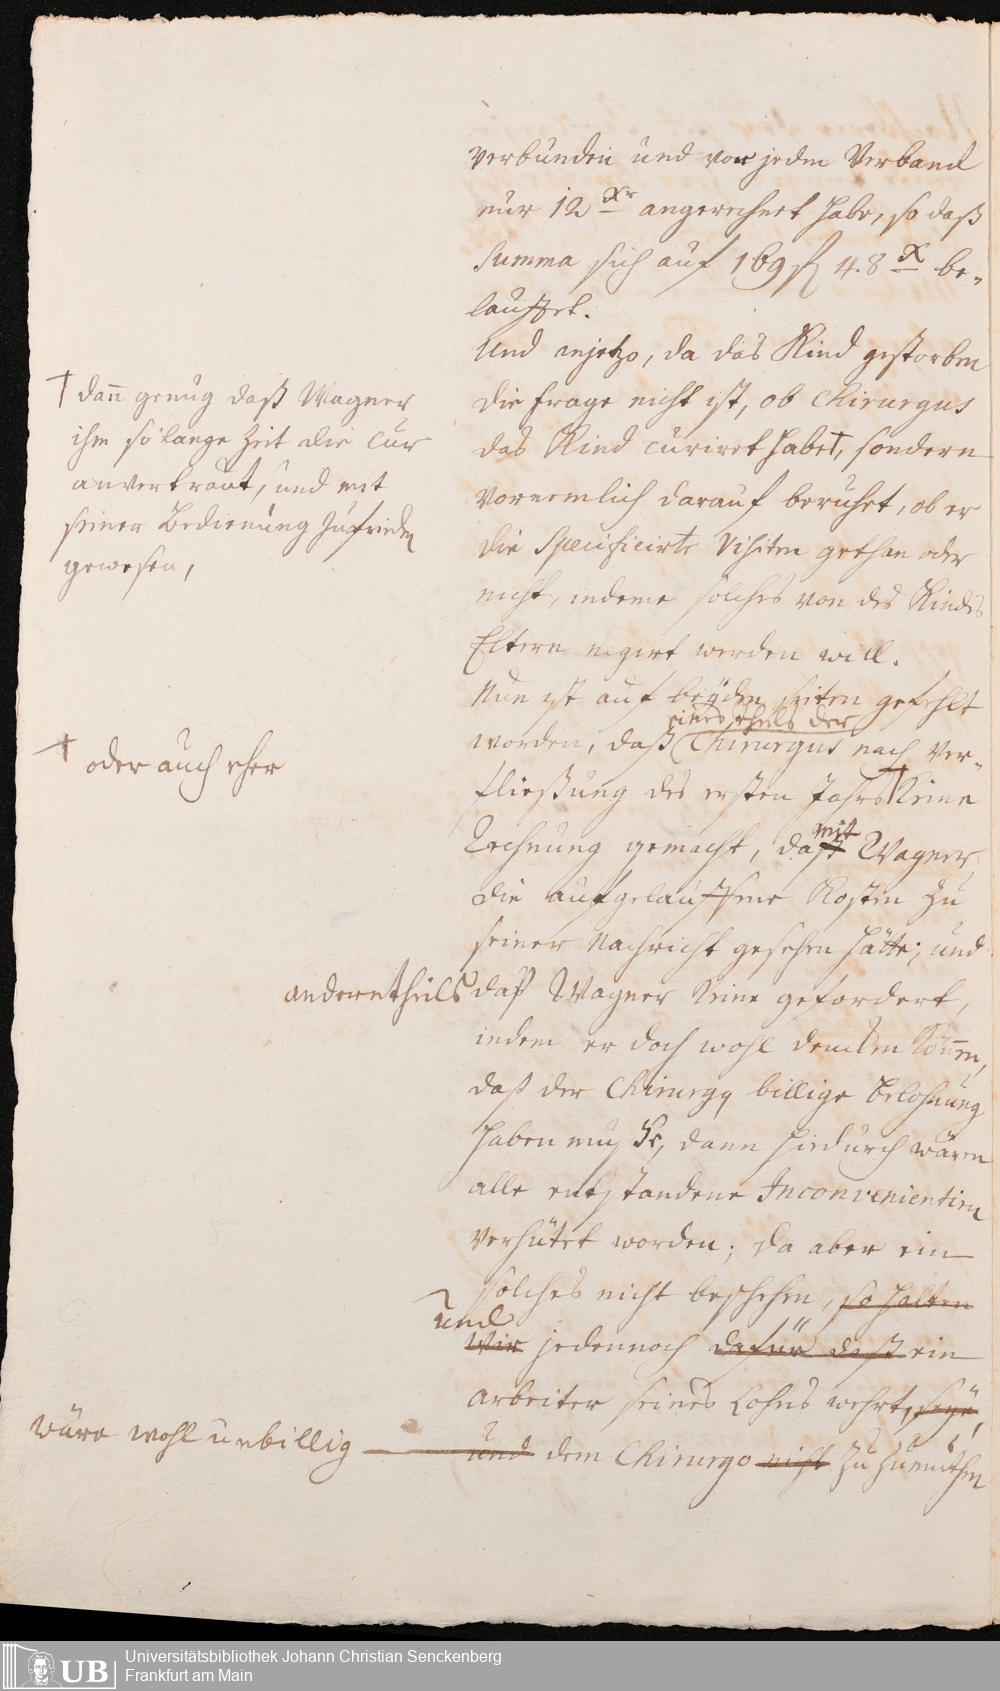 verbunden und von jedem Verband
nur 12 Xr angerechnet habe, so daß
Summa sich auf 169 fl 48 X be-
lauffet.
Und anjetzo, da das Kind gestorben
die Frage nicht ist, ob Chirurgus
das Kind curiret habe†, sondern
vornemlich darauf beruhet, ob er
die Specificirte Visiten gethan oder
nicht, indeme solches von des Kindes
Eltern negirt werden will.
† dann genug daß Wagner
ihm so lange Zeit die Cur
anvertraut, und mit
seiner Bedienung zufrieden
gewesen,
Nun ist auf beyden seiten gefehlt
eines theils der
worden, daß Chirurgus nach Ver-
fließung des ersten Jahrs† keine
† oder auch eher
Rechnung gemacht, daß mit Wagner
die aufgelauffene Kosten zu
seiner Nachricht gesehen hätte; und
anderntheils daß Wagner keine gefordert,
indem er doch wohl dencken können,
daß der Chirurgq billige Belohnung
haben müße, dann hiedurch wären
alle entstandene Inconvenientien
verhütet worden; da aber ein
solches nicht beschehen, so halten
und
Wir jedennoch dafür daß ein
arbeiter seines Lohns wehrt, seye,
wäre wohl unbillig
und dem Chirurgo nicht zu zumuthen
Universitätsbibliothek Johann Christian Senckenberg
Frankfurt am Main
UB